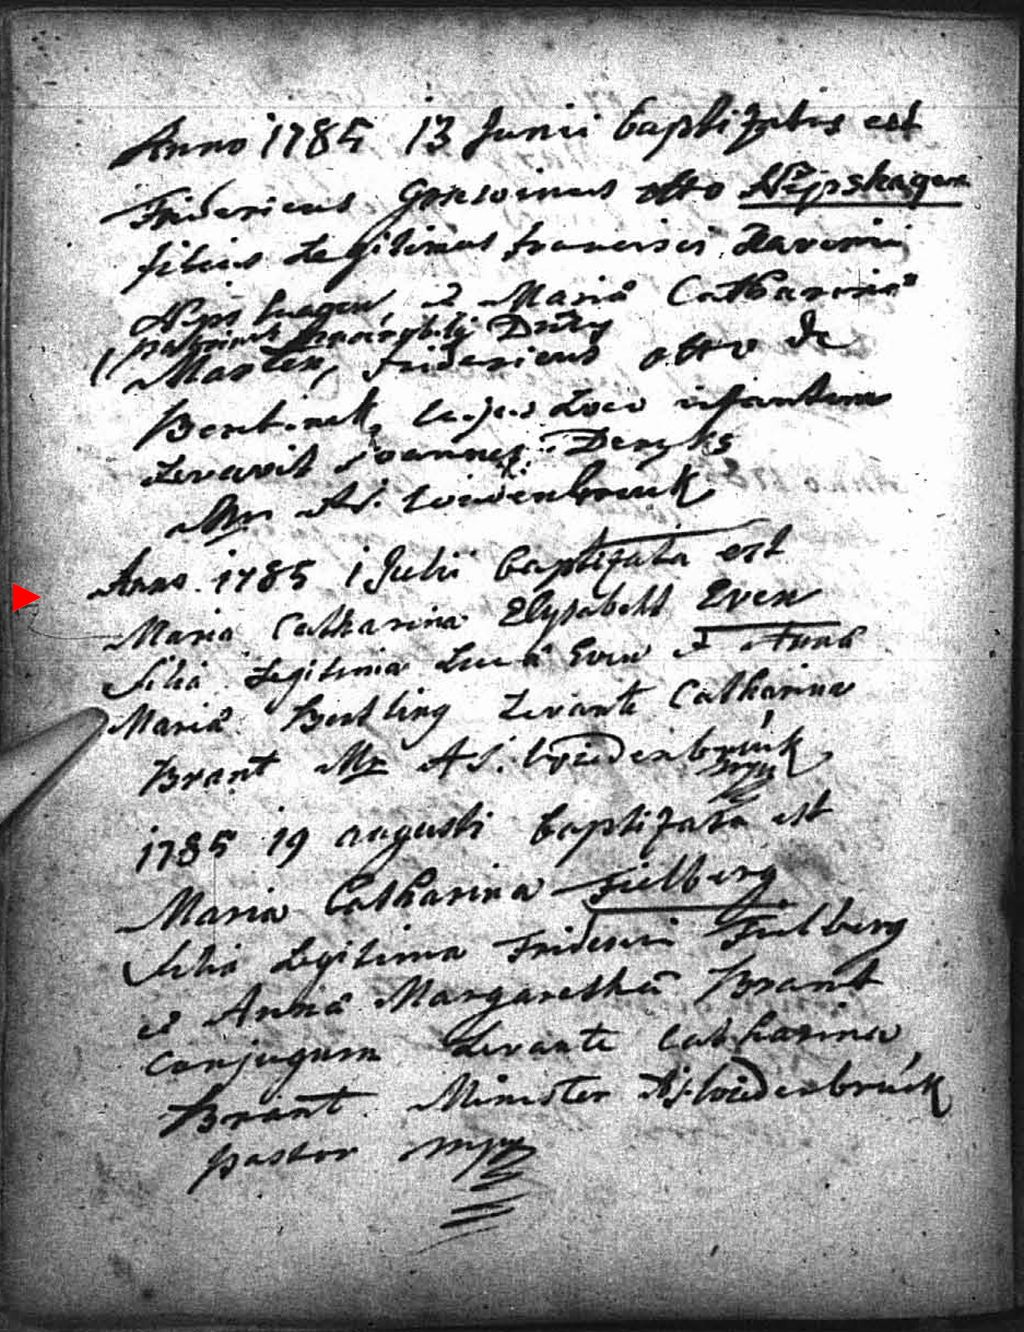 Anno 1785 13 Junii baptizatus est
Fridericus otto
filius Legitimus
& Mariâ Catharinâ
Fridericus otto de
cujus Loco infantem
Levavit Joannes Deryks
Mr AS. Wiedenbrück
Anno 1785 1 Julii baptizata est
Maria Catharina Elysabeth Even
filia Legitima Lucâ Even & Annâ
Mariâ Levante Catharina
Brant Mr AS. Wiedenbrück
mpp
1785 19 augusti baptizata est
Maria Catharina Fielberg
filia Legitima Friderici Fielberg
& Annâ Margarethâ Brant
conjugum Levante Catharina
Brant Minister AS. Wiedenbrück
pastor mpp